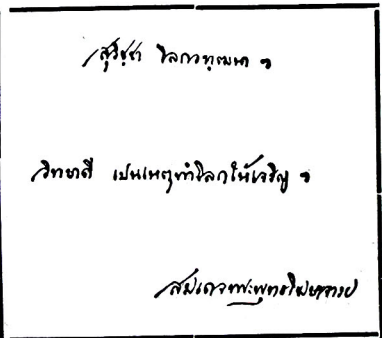 สุวิชฺชา โลกวฑฺฒนา ฯ
วิทยาดี เป็นเหตุทำโลกให้เจริญ ฯ
สมเด็จพระพุทธโฆษาจารย์